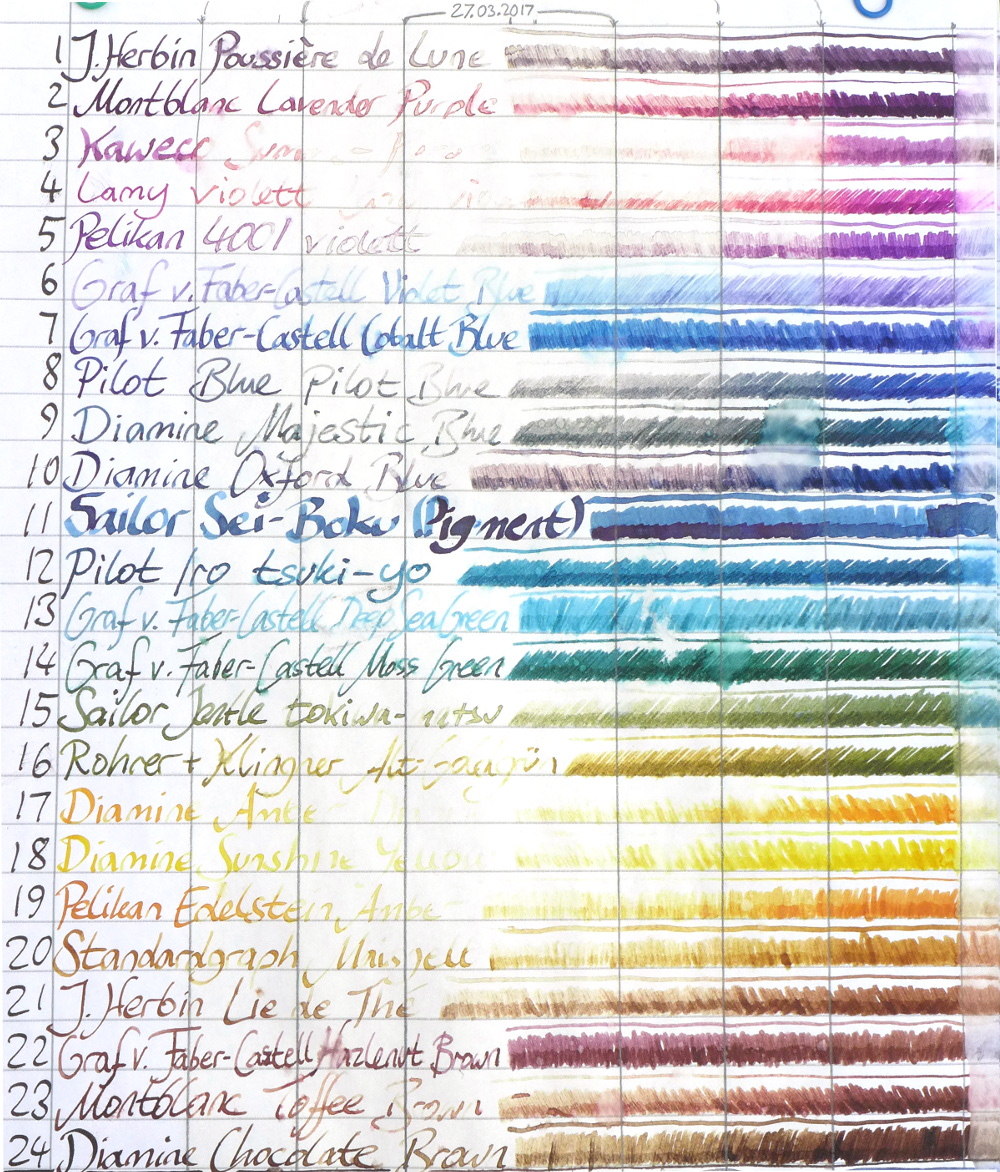 27.03.2017
1 J. Herbin Poussière de Lune
2 Montblanc Lavender Purple
3 Kaweco
4 Lamy violett
5 Pelikan 4001 violett
6 Graf v. Faber-Castell Violet Blue
7 Graf v. Faber-Castell Cobalt Blue
8 Pilot Blue Pilot Blue
9 Diamine Majestic Blue
10 Diamine Oxford Blue
11 Sailor Sei-Boku (Pigment)
12 Pilot Iro tsuki-yo
13 Graf v. Faber-Castell Deep Sea Green
14 Graf v. Faber-Castell Moss Green
15 Sailor Jentle tokiwa-matsu
16 Rohrer + Klingner Alt-Goldgrün
17 Diamine Amber
18 Diamine Sunshine Yellow
19 Pelikan Edelstein Amber
20 Standardgraph
21 J. Herbin Lie de Thé
22 Graf v. Faber-Castell Hazlenut Brown
23 Montblanc Toffee Brown
24 Diamine Chocolate Brown